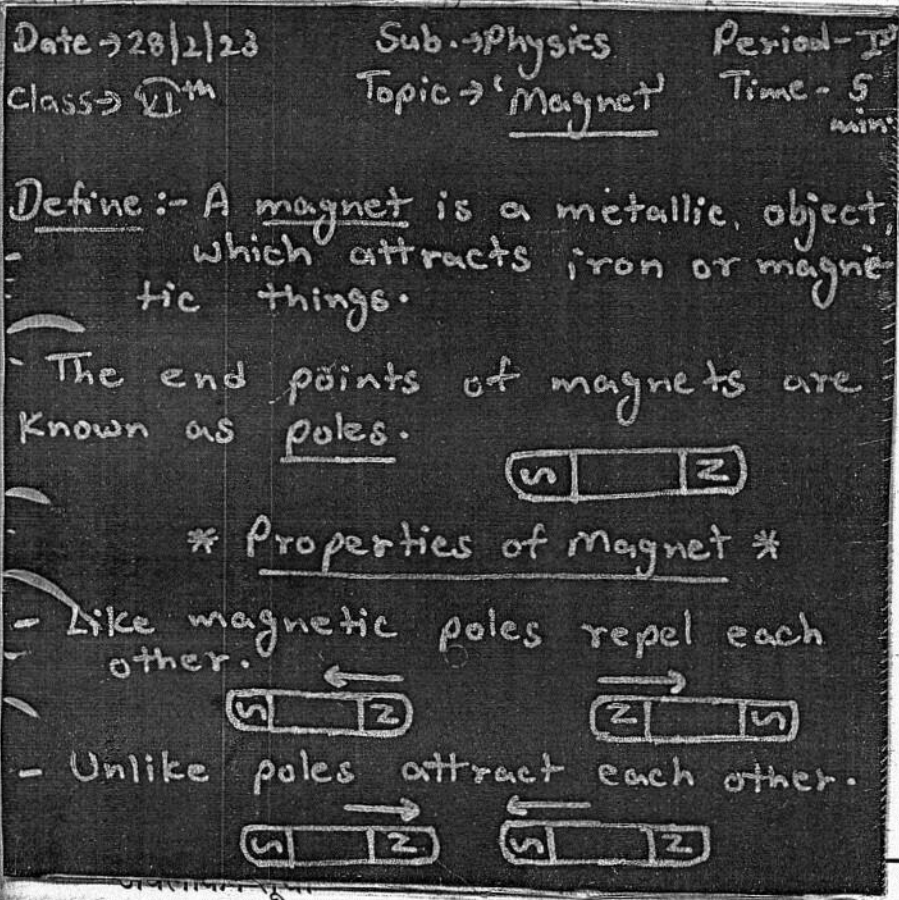 Date → 28/2/23 Sub. → Physics Period - IV
Class → VIth Topic → 'Magnet' Time - 5 min.
Define :- A magnet is a metallic, object,
which attracts iron or magne
tic things.
- The end points of magnets are
known as poles.
S N
* Properties of Magnet *
- Like magnetic poles repel each
other.
S N N S
- Unlike poles attract each other.
S N S N